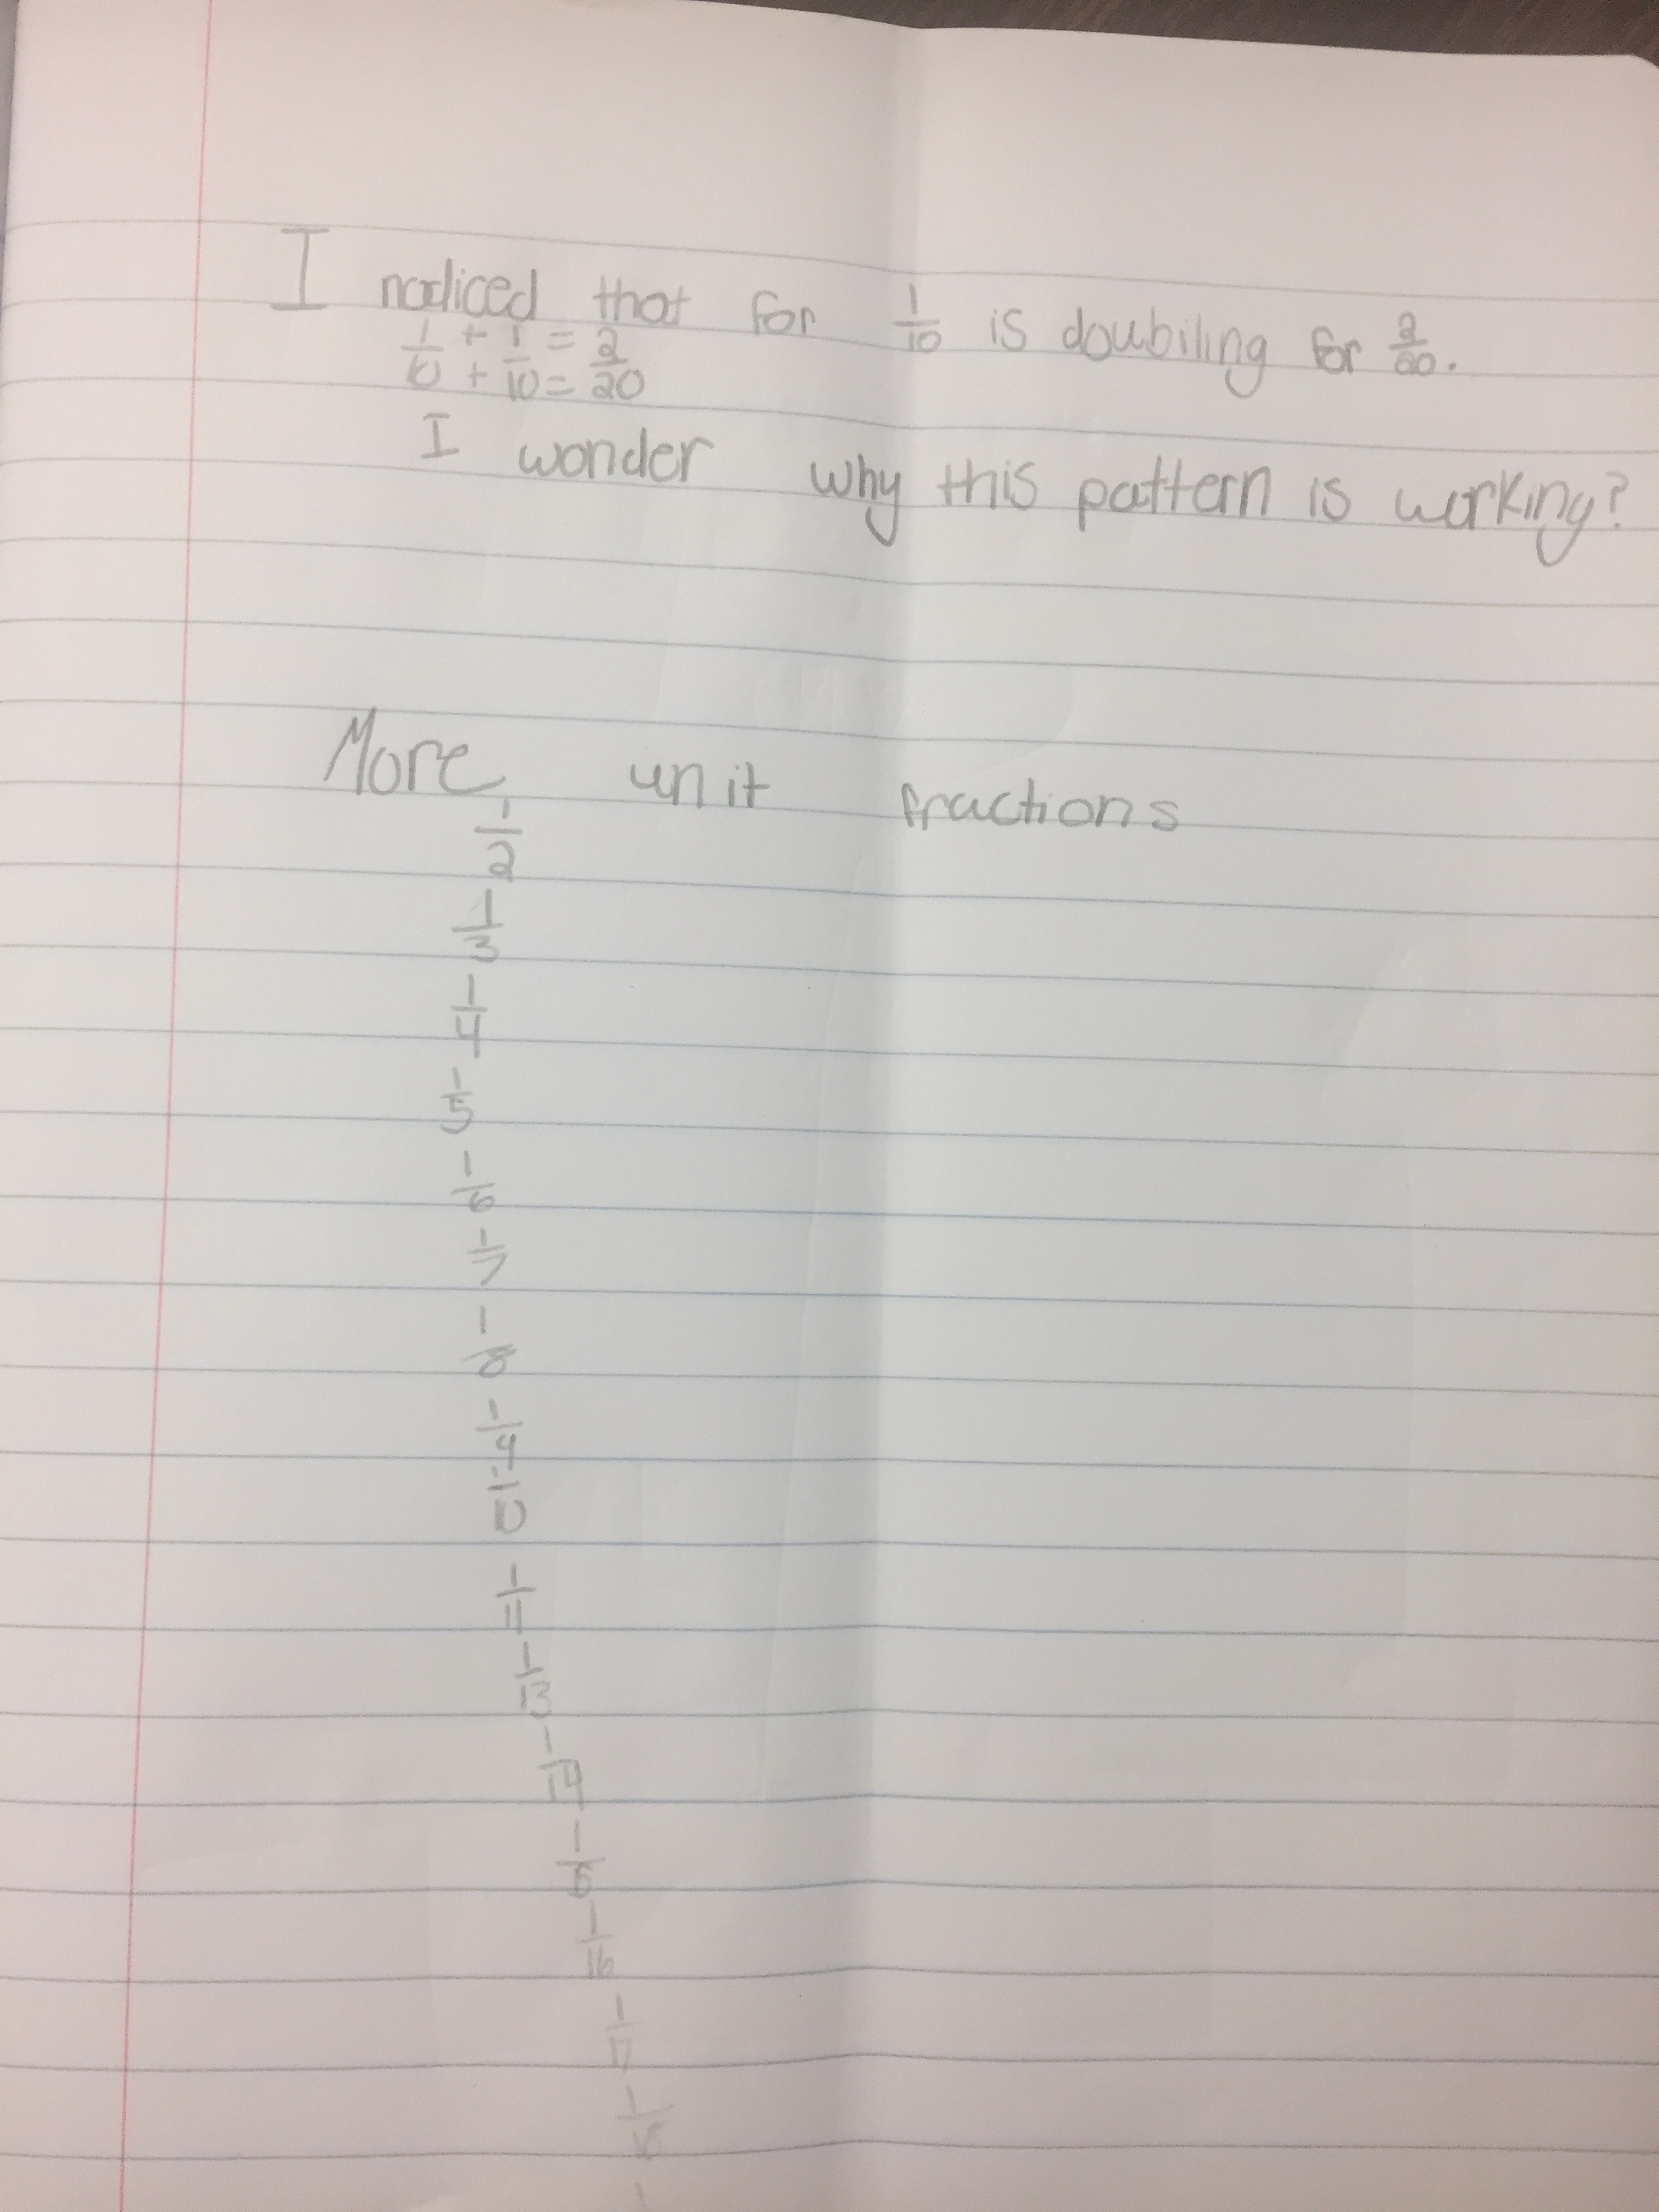 I nodiced that for 1/10 is doubiling for 2/20.
1/10 + + 1/10 = = 2/20
I wonder why this pattern is working?
More unit fractions
1/2
1/3
1/4
1/5
1/6
1/7
1/8
1/9
1/10
1/11
1/13
1/14
1/15
1/16
1/17
1/18